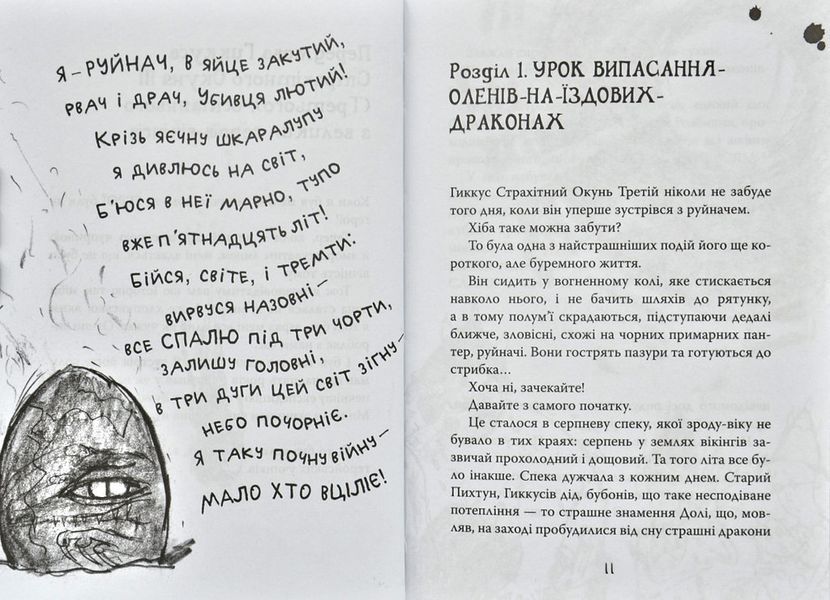 Я – РУЙНАЧ, В ЯЙЦЕ ЗАКУТИЙ,
РВАЧ І ДРАЧ, УБИВЦЯ ЛЮТИЙ!
КРІЗЬ ЯЄЧНУ ШКАРАЛУПУ
Я ДИВЛЮСЬ НА СВІТ,
Б'ЮСЯ В НЕЇ МАРНО, ТУПО
ВЖЕ П'ЯТНАДЦЯТЬ ЛІТ!
БІЙСЯ, СВІТЕ, І ТРЕМТИ:
ВИРВУСЯ НАЗОВНІ –
ВСЕ СПАЛЮ ПІД ТРИ ЧОРТИ,
ЗАЛИШУ ГОЛОВНІ,
В ТРИ ДУГИ ЦЕЙ СВІТ ЗІГНУ –
НЕБО ПОЧОРНІЄ.
Я ТАКУ ПОЧНУ ВІЙНУ –
МАЛО ХТО ВЦІЛІЄ!
Розділ 1. УРОК ВИПАСАННЯ-
ОЛЕНІВ-НА-ЇЗДОВИХ-
ДРАКОНАХ
Гиккус Страхітний Окунь Третій ніколи не забуде
того дня, коли він уперше зустрівся з руйначем.
Хіба таке можна забути?
То була одна з найстрашніших подій його ще ко-
роткого, але буремного життя.
Він сидить у вогненному колі, яке стискається
навколо нього, і не бачить шляхів до рятунку,
а в тому полум'ї скрадаються, підступаючи дедалі
ближче, зловісні, схожі на чорних примарних пан-
тер, руйначі. Вони гострять пазури та готуються до
стрибка...
Хоча ні, зачекайте!
Давайте з самого початку.
Це сталося в серпневу спеку, якої зроду-віку не
бувало в тих краях: серпень у землях вікінгів за-
звичай прохолодний і дощовий. Та того літа все бу-
ло інакше. Спека дужчала з кожним днем. Старий
Пихтун, Гиккусів дід, бубонів, що таке несподіване
потепління — то страшне знамення Долі, що, мов-
ляв, на заході пробудилися від сну страшні дракони
11